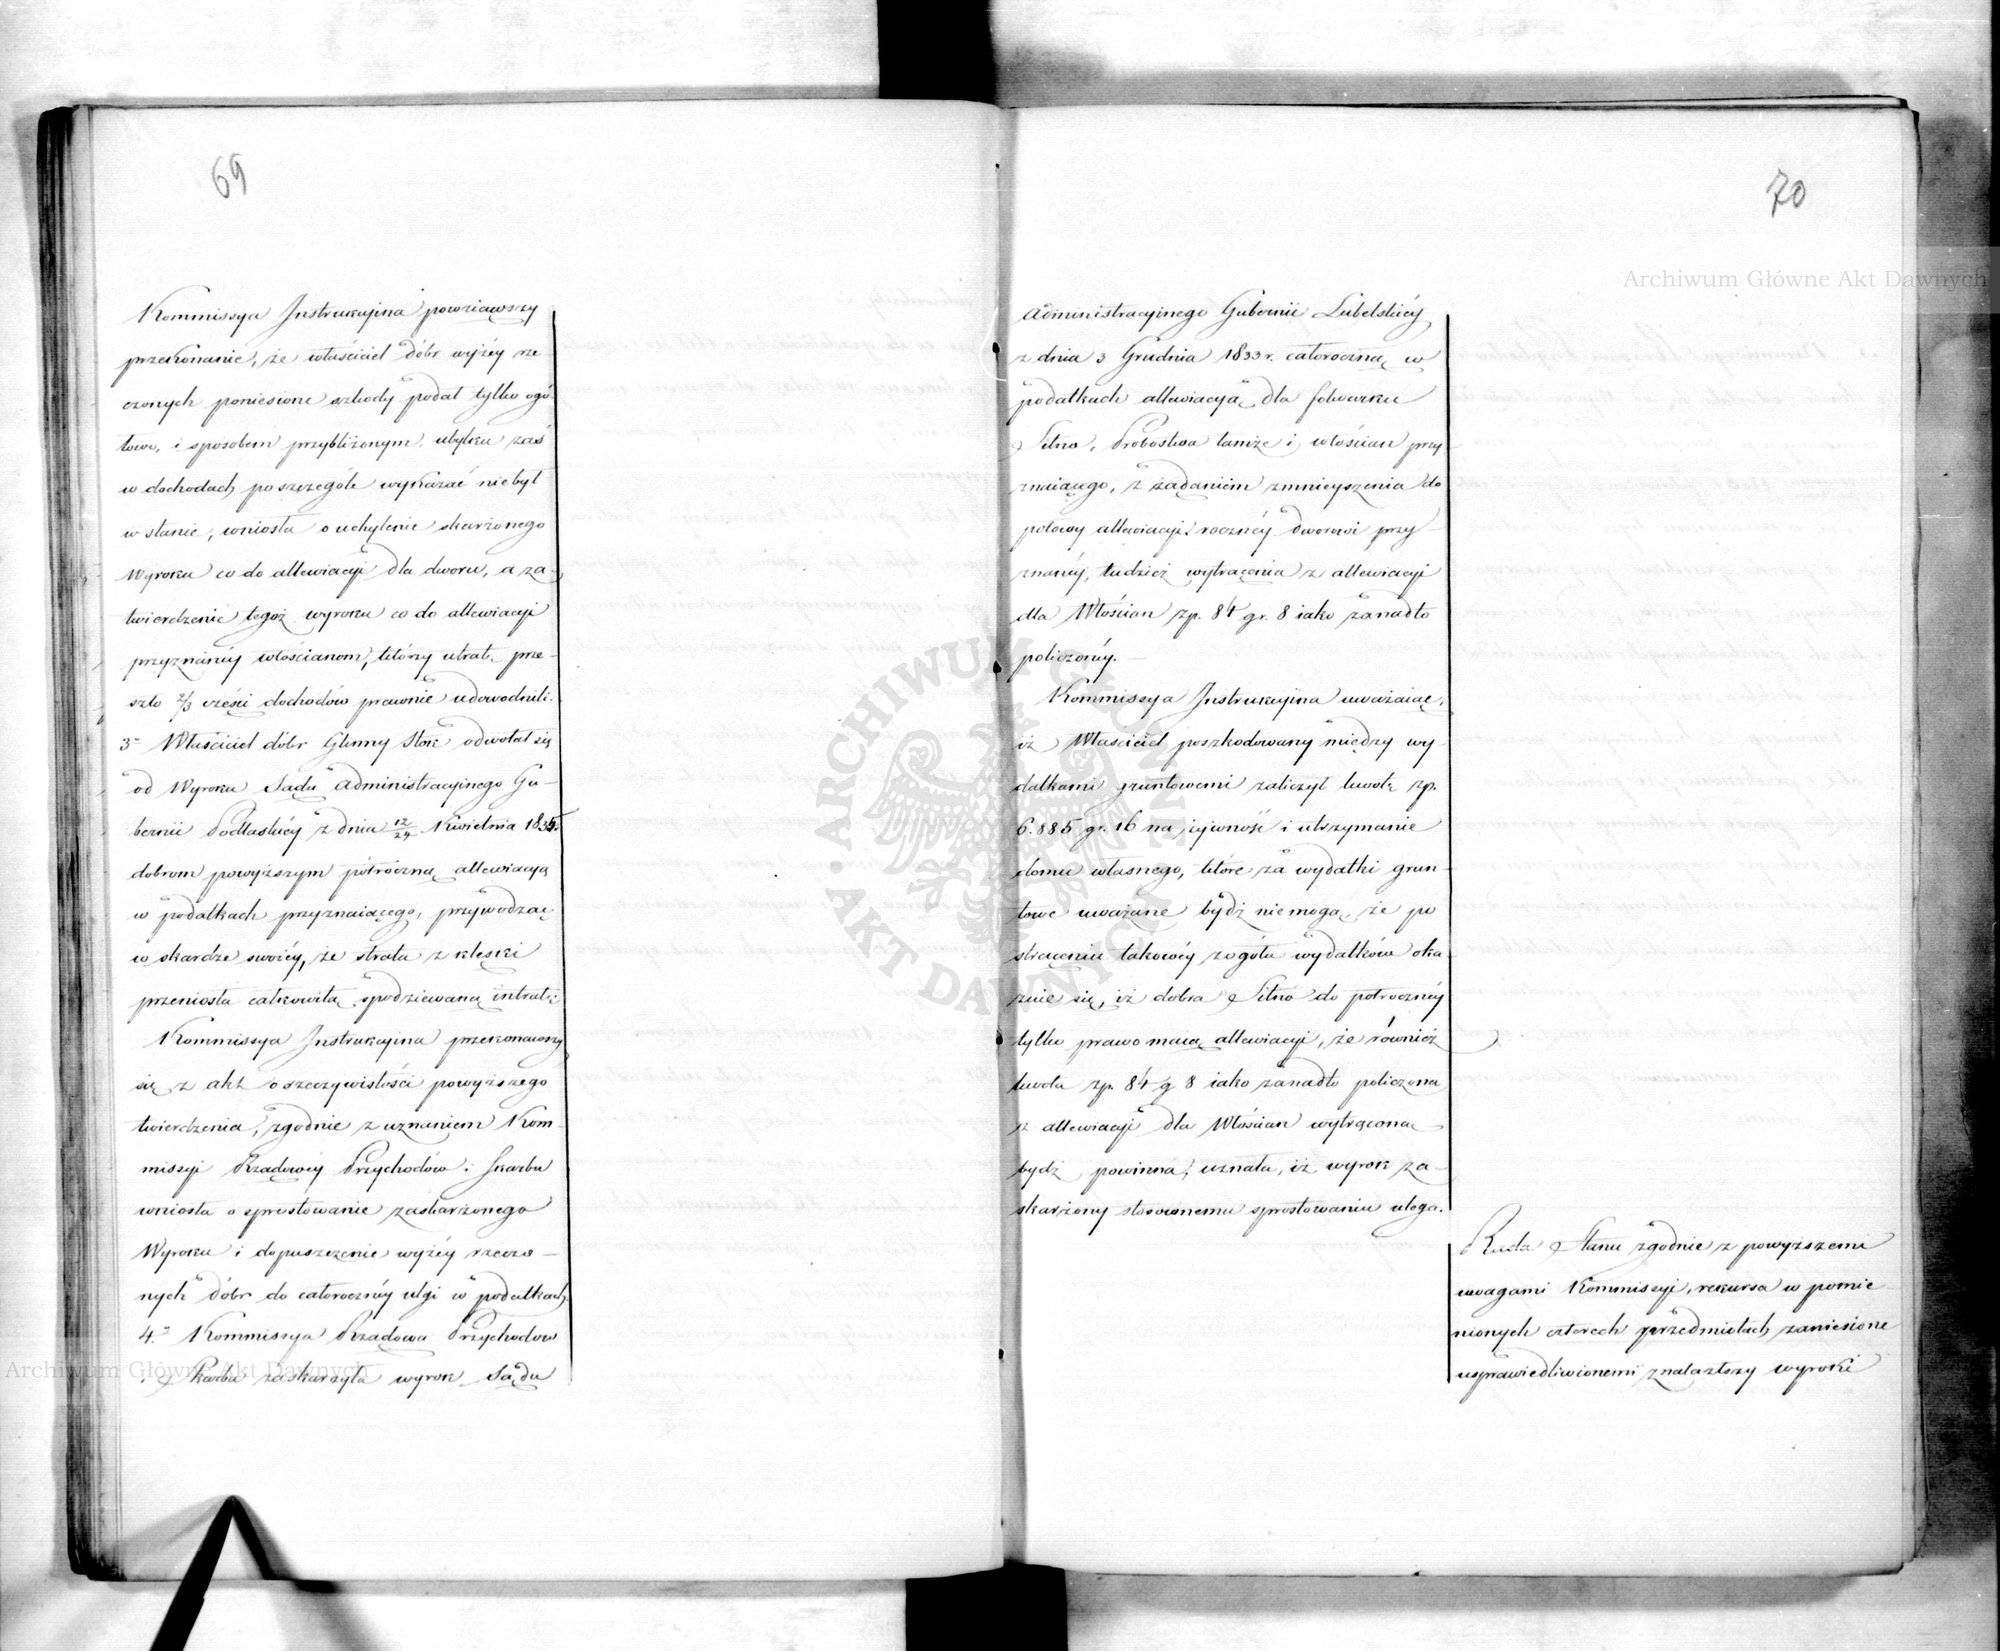 69
Kommissya Instrukcyina powziąwszy
przekonanie, że właściciel dóbr wyżéy rze-
czonych poniesione szkody podał tylko ogó-
łowo, i sposobem przybliżonym, ubytku zaś
w dochodach poszczególe wykazać niebył
w stanie, wniosła o uchylenie skarżonego
Wyroku co do allewiacyi dla dworu, a za-
twierdzenie tegoż wyroku co do allewiacyi
przyznanéy włościanom, którzy utratę prze-
szło 2/3 części dochodów prawnie udowodnili.
3º Właściciel dóbr Glinny Stok odwołał się
od Wyroku Sądu Administracyinego Gu-
bernii Podlaskiéy z dnia 12/24 Kwietnia 1835
dobrom powyższym półroczną allewiacyą
w podatkach przyznaiącego, przywodząc
w skardze swoiéy, że strata z klęski
przeniosła całkowitą spodziewaną intratę.
Kommissya Instrukcyina przekonawszy
się z akt o rzeczywistości powyższego
twierdzenia, zgodnie z uznaniem Kom-
missyi Rządowéy Przychodów i Skarbu
wniosła o sprostowanie zaskarżonego
Wyroku i dopuszczenie wyżéy rzeczo-
nych dóbr do całorocznéy ulgi w podatkach.
4º Kommissya Rządowa Przychodow
i Skarbu zaskarżyła wyrok Sądu
70
Administracyinego Gubernii Lubelskiéy
z dnia 3 Grudnia 1833 r. całoroczną w
podatkach allewiacyą dla folwarku
Sitno, Probostwa tamże i włościan przy-
znaiącego, z żądaniem zmnieyszenia do
połowy allewiacyi rocznéy dworowi przy-
znanéy, tudzież wytrącenia z allewiacyi
dla Włościan zp. 84 gr. 8 iako zanadto
policzonéy.
Kommissya Instrukcyina uważaiąc,
iż Właściciel poszkodowany między wy-
datkami gruntowemi zaliczył kwotę zp.
6.885 gr. 16 na żywność i utrzymanie
domu własnego, które za wydatki grun-
towe uważane bydź niemogą, że po
strąceniu takowéy zogółu wydatków oka-
zuie się, iż dobra Sitno do połrocznéy
tylko prawo maią allewiacyi, że również
kwota zp. 84 g 8 iako zanadto policzona
z allewiacyi dla Włościan wytrąconą
bydź powinna, uznała, iż wyrok za-
skarżony stosownemu sprostowaniu ulega.
Rada Stanu zgodnie z powyższemi
uwagami Kommissyi, rekursa w pomie-
nionych czterech przedmiotach zaniesione
usprawiedliwionemi znalazłszy wyroki
Archiwum Główne Akt Dawnych
Archiwum Główne Akt Dawnych
ARCHIWUM GŁÓWNE AKT DAWNYCH